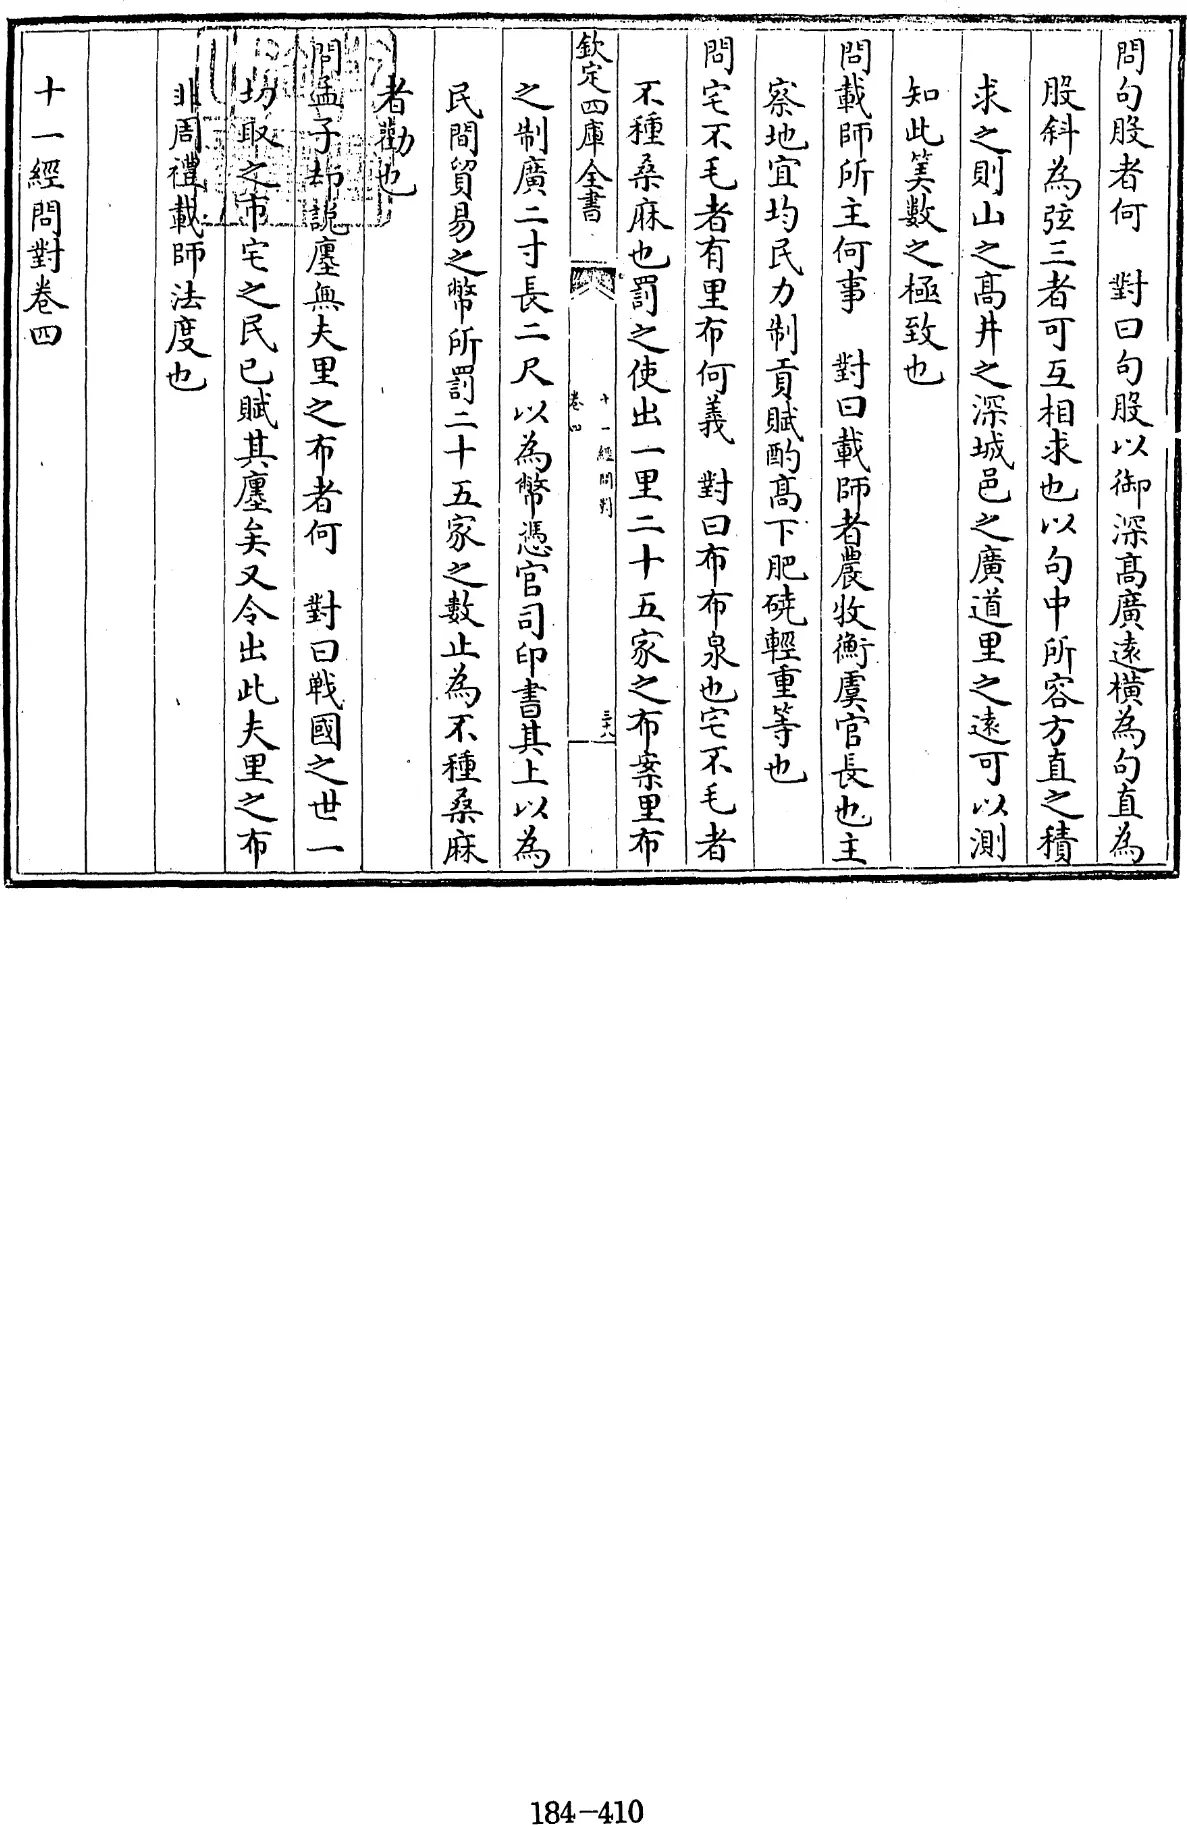 問句股者何　對曰句股以御深髙廣遠橫為句直為
股斜為弦三者可互相求也以句中所容方直之積
求之則山之髙井之深城邑之廣道里之遠可以測
知此筭數之極致也
問載師所主何事　對曰載師者農牧衡虞官長也主
察地宜均民力制貢賦酌髙下肥磽輕重等也
問宅不毛者有里布何義　對曰布布泉也宅不毛者
不種桑麻也罰之使出一里二十五家之布案里布
欽定四庫全書
十一經問對
卷四
三十八
之制廣二寸長二尺以為幣憑官司印書其上以為
民間貿易之幣所罰二十五家之數止為不種桑麻
者勸也
問孟子却說廛無夫里之布者何　對曰戰國之世一
切取之市宅之民已賦其廛矣又令出此夫里之布
非周禮載師法度也
十一經問對卷四
184-410